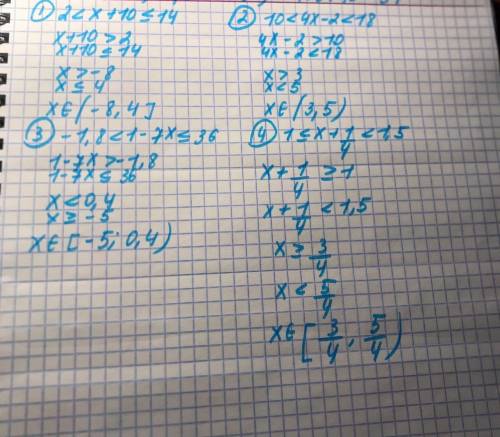 ① 2 < x + 10 ≤ 14
x+10 > 2
x+10 ≤ 14
x > -8
x ≤ 4
x∈(-8, 4]
② 10 < 4x - 2 < 18
4x - 2 > 10
4x - 2 < 18
x > 3
x < 5
x∈(3, 5)
③ -1,8 < 1 - 7x ≤ 36
1 - 7x > -1,8
1 - 7x ≤ 36
x < 0,4
x ≥ -5
x∈[-5; 0,4)
④ 1 ≤ x + 1/4 < 1,5
x + 1/4 ≥ 1
x + 1/4 < 1,5
x ≥ 3/4
x < 5/4
x∈[3/4, 5/4)